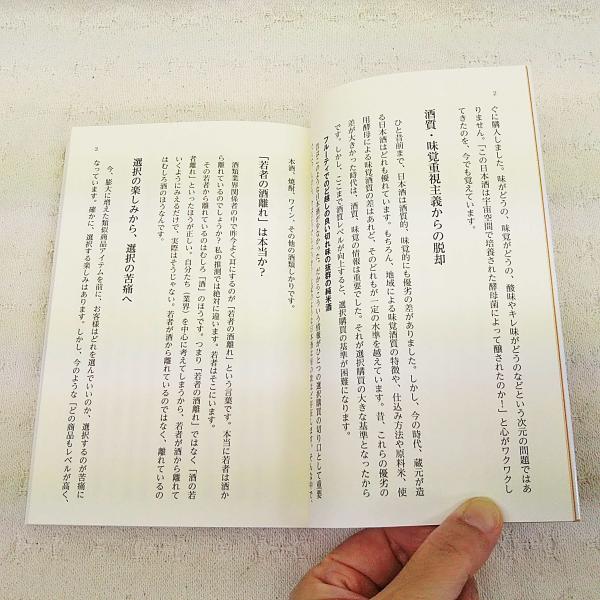 2
ぐに購入しました。味がどうの、味覚がどうの、酸味やキレ味がどうのなどという次元の問題ではあ
りません。「この日本酒は宇宙空間で培養された酵母菌によって醸されたのか！」と心がワクワクし
てきたのを、今でも覚えています。
酒質・味覚重視主義からの脱却
ひと昔前まで、日本酒は酒質的、味覚的にも優劣の差がありました。しかし、今の時代、蔵元が造
る日本酒はどれも優れています。もちろん、地域による味覚酒質の特徴や、仕込み方法や原料米、使
用酵母による味覚酒質の差はあれど、そのどれもが一定の水準を越えています。昔、これらの優劣の
差が大きかった時代は、酒質、味覚の情報は重要でした。それが選択購買の大きな基準となったから
です。しかし、ここまで酒質レベルが向上すると、選択購買の基準が困難になります。
フルーティでのど越しの良い切れ味の抜群の純米酒
だからこういう情報がひとつの選択購買の切り口として重要
本酒、焼酎、ワイン、その他の酒類しかりです。
「若者の酒離れ」は本当か？
酒類業界関係者の中で昨今よく耳にするのが「若者の酒離れ」という言葉です。本当に若者は酒か
ら離れているのでしょうか？私の推測では絶対に違います。若者はそこにいます。
その若者から離れているのはむしろ「酒」のほうです。つまり「若者の酒離れ」ではなく「酒の若
者離れ」といったほうが正しい。自分たち（業界）を中心に考えてしまうから、若者が酒から離れて
いくようにみえるだけで、実際はそうじゃない。若者が酒から離れているのではなく、離れているの
はむしろ酒のほうなんです。
選択の楽しみから、選択の苦痛へ
今、膨大に増えた類似商品アイテムを前に、お客様はどれを選んでいいのか、選択するのが苦痛に
なっています。確かに、選択する楽しみはあります。しかし、今のような「どの商品もレベルが高く、
2